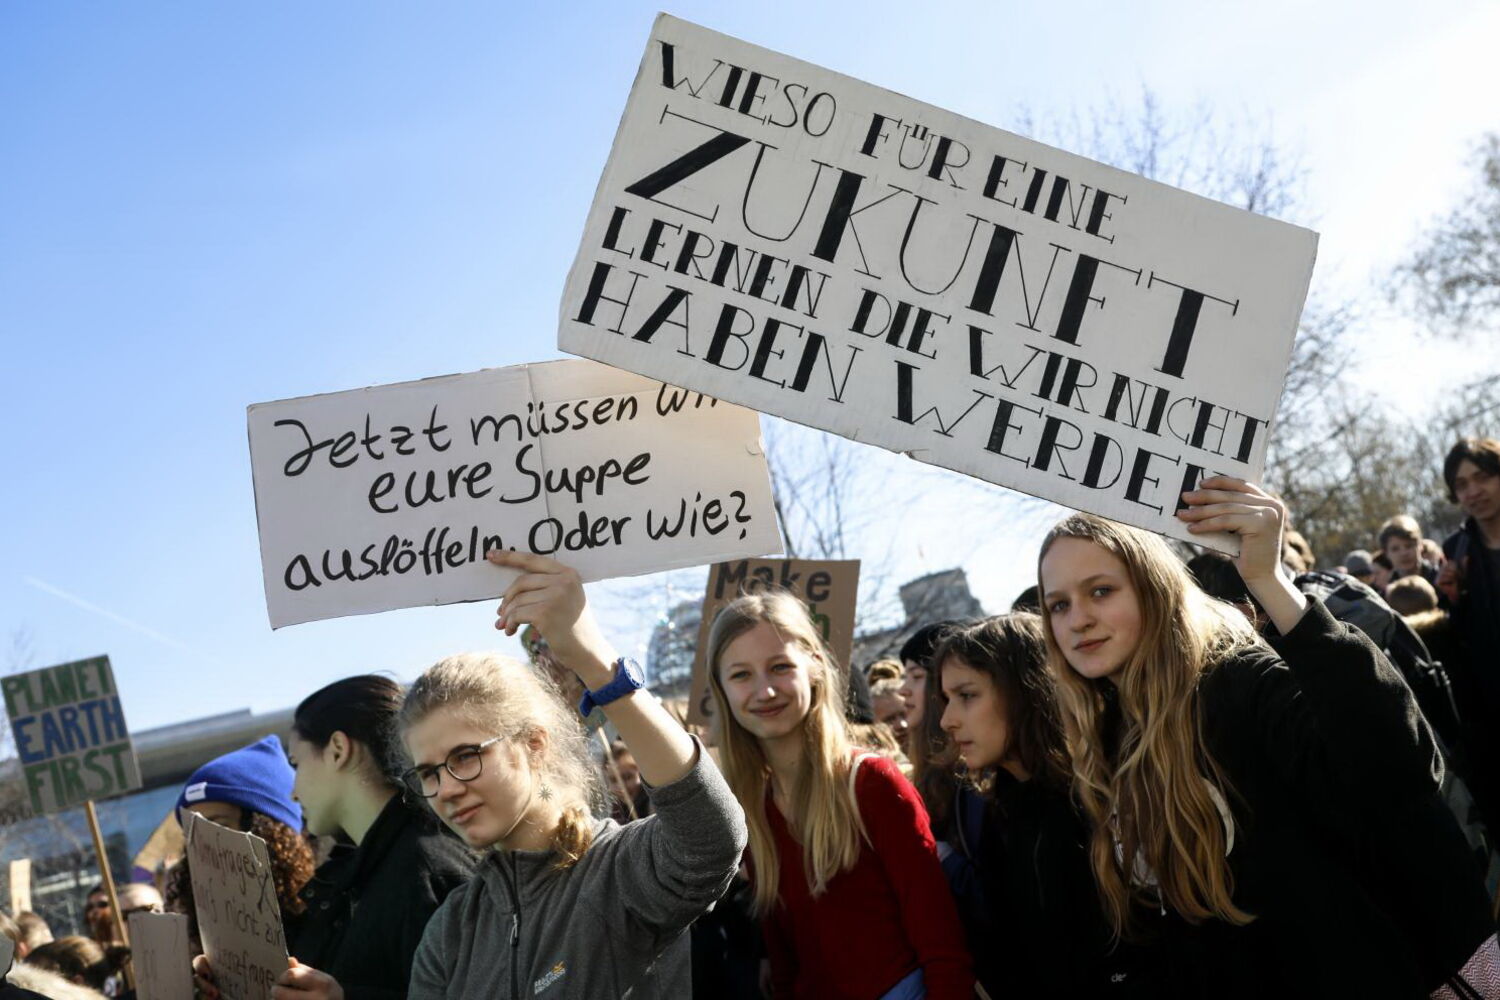 WIESO FÜR EINE
ZUKUNFT
LERNEN DIE WIR NICHT
HABEN WERDEN
Jetzt müssen wir
eure Suppe
auslöffeln. Oder wie?
Make
PLANET
EARTH
FIRST
nicht zur